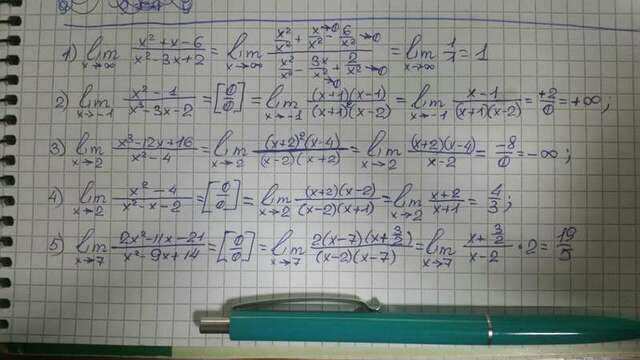 1) lim x→∞ (x²+x-6)/(x²-3x+2) = lim x→∞ (x²/x² + x/x² →0 - 6/x² →0)/(x²/x² - 3x/x² →0 + 2/x² →0) = lim x→∞ 1/1 = 1
2) lim x→-1 (x²-1)/(x³-3x-2) = [0/0] = lim x→-1 ((x+1)(x-1))/((x+1)²(x-2)) = lim x→-1 (x-1)/((x+1)(x-2)) = +2/0 = +∞;
3) lim x→2 (x³-12x+16)/(x²-4) = lim x→2 ((x+2)²(x-4))/((x-2)(x+2)) = lim x→2 ((x+2)(x-4))/(x-2) = -8/0 = -∞;
4) lim x→2 (x²-4)/(x²-x-2) = [0/0] = lim x→2 ((x+2)(x-2))/((x-2)(x+1)) = lim x→2 (x+2)/(x+1) = 4/3;
5) lim x→7 (2x²-11x-21)/(x²-9x+14) = [0/0] = lim x→7 (2(x-7)(x+3/2))/((x-2)(x-7)) = lim x→7 (x+3/2)/(x-2) · 2 = 19/5